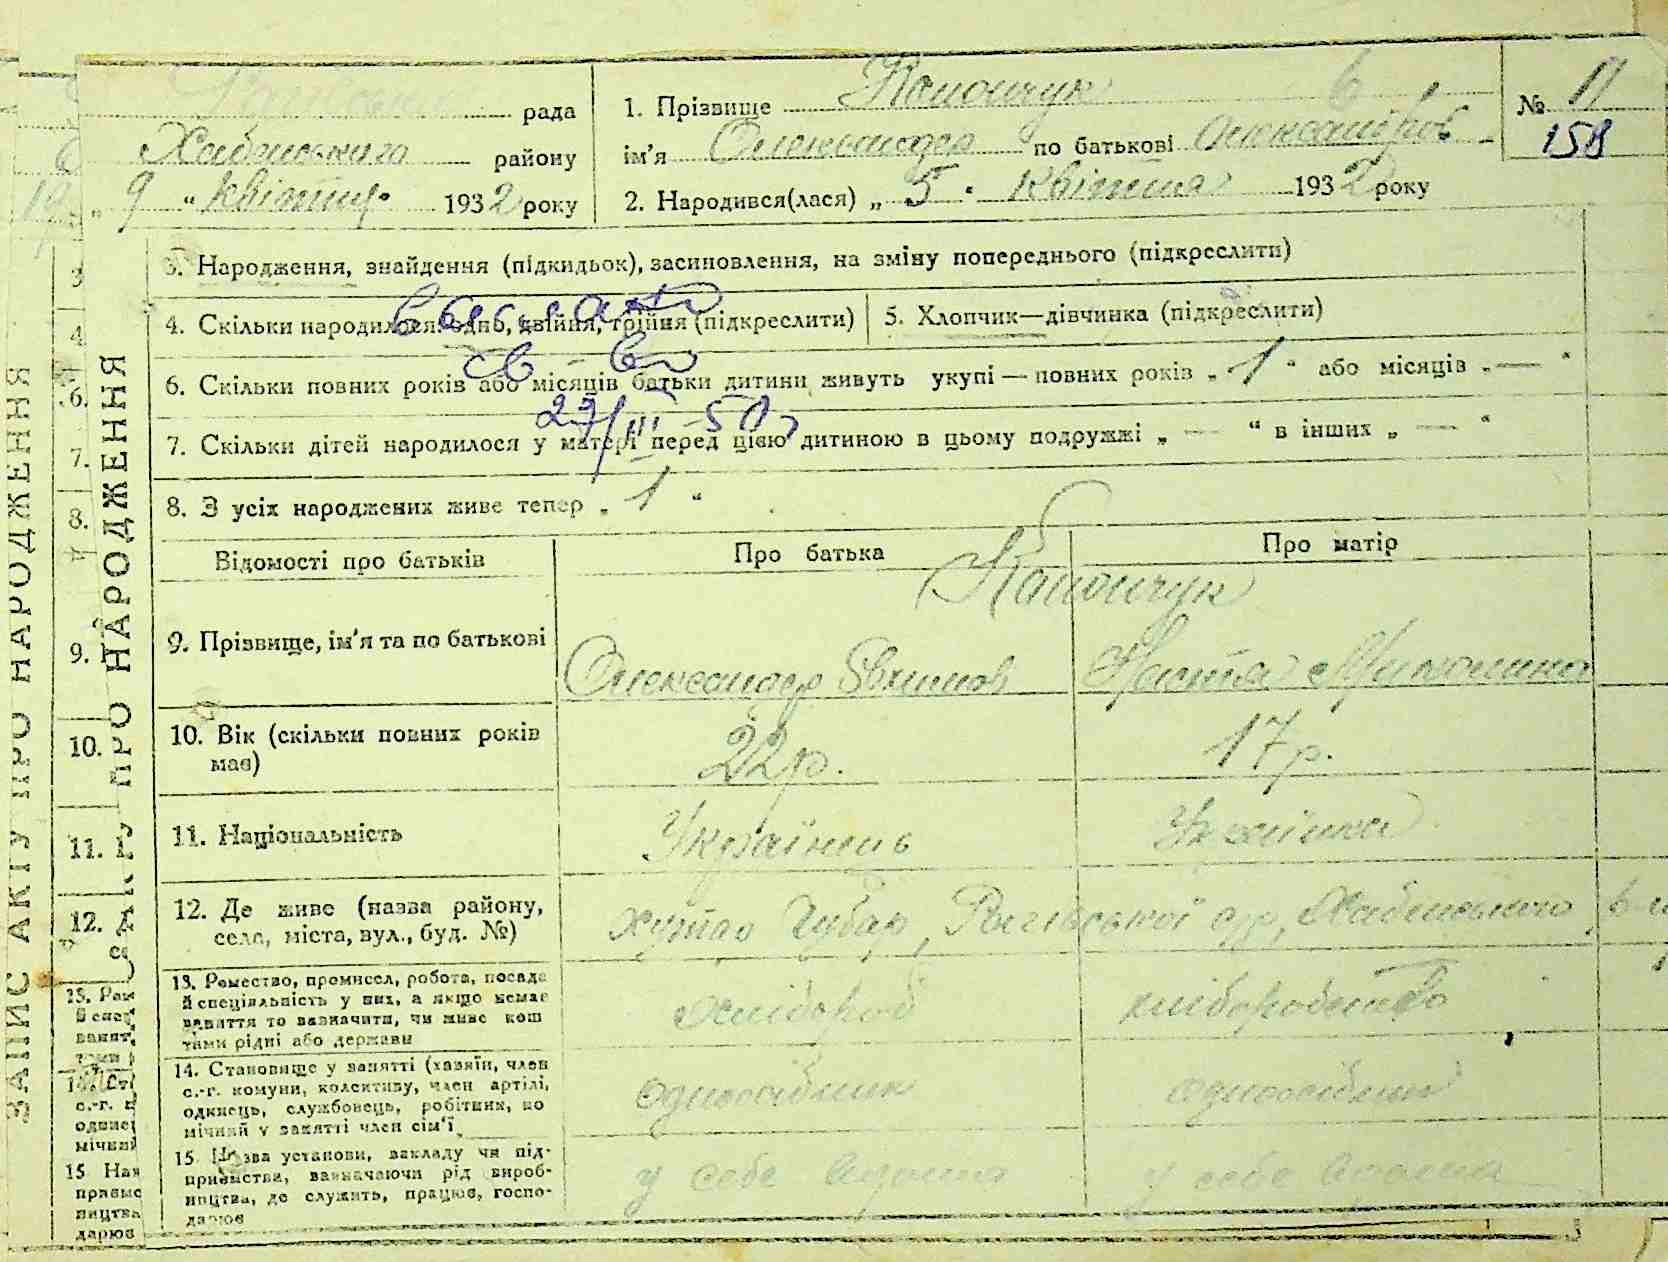 рада
Хабенського району
„ 9 “ квітня 1932 року
1. Прізвище Конончук
ім'я Олександер по батькові Олександров
2. Народився(лася) „ 5 “ квітня 1932 року
№ 11
158
3. Народження, знайдення (підкидьок), засиновлення, на зміну попереднього (підкреслити)
4. Скільки народилося: одно, двійня, трійня (підкреслити)
5. Хлопчик—дівчинка (підкреслити)
св-во
27/III-50р
6. Скільки повних років або місяців батьки дитини живуть укупі — повних років „ 1 “ або місяців „ — “
7. Скільки дітей народилося у матері перед цією дитиною в цьому подружжі „ — “ в інших „ — “
8. З усіх народжених живе тепер „ 1 “
Відомості про батьків Про батька Про матір
Конончук
9. Прізвище, ім'я та по батькові Олександер Явхимов Настя Миколина
10. Вік (скільки повних років має) 22р. 17р.
11. Національність Українець Українка
12. Де живе (назва району, села, міста, вул., буд. №) хутір Чубар, с/р, Хабенського
13. Ремество, промисел, робота, посада
й спеціяльність у них, а якщо немає
заняття то зазначити, чи живе кош
тами рідні або держави
хлібороб хліборобство
14. Становище у занятті (хазяїн, член
с.-г. комуни, колективу, член артілі,
одинець, службовець, робітник, по
мічний у занятті член сім'ї
одноосібник одноосібник
15. Назва установи, закладу чи під-
приємства, зазначаючи рід вироб-
ництва, де служить, працює, госпо-
дарює
у себе вдома у себе вдома
ПРО НАРОДЖЕННЯ
ЗАПИС АКТУ ПРО НАРОДЖЕННЯ
3
4
6.
7.
8.
9.
10.
11.
12.